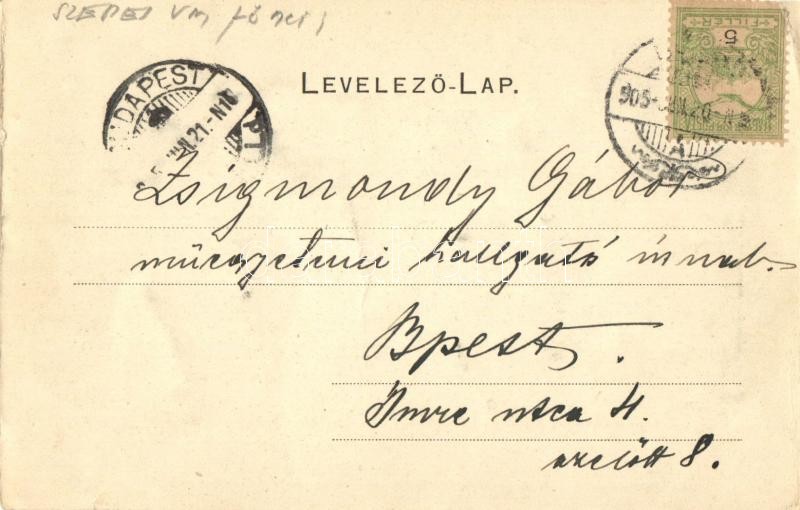 SZEPES VM
FILLER
5
LEVELEZŐ-LAP.
BUDAPEST
JUN. 21. N10
905 JUN. 20
Zsigmondy Gábor
műegyetemi hallgató úrnak
Bpest.
Imre utca 4.
azelőtt 8.